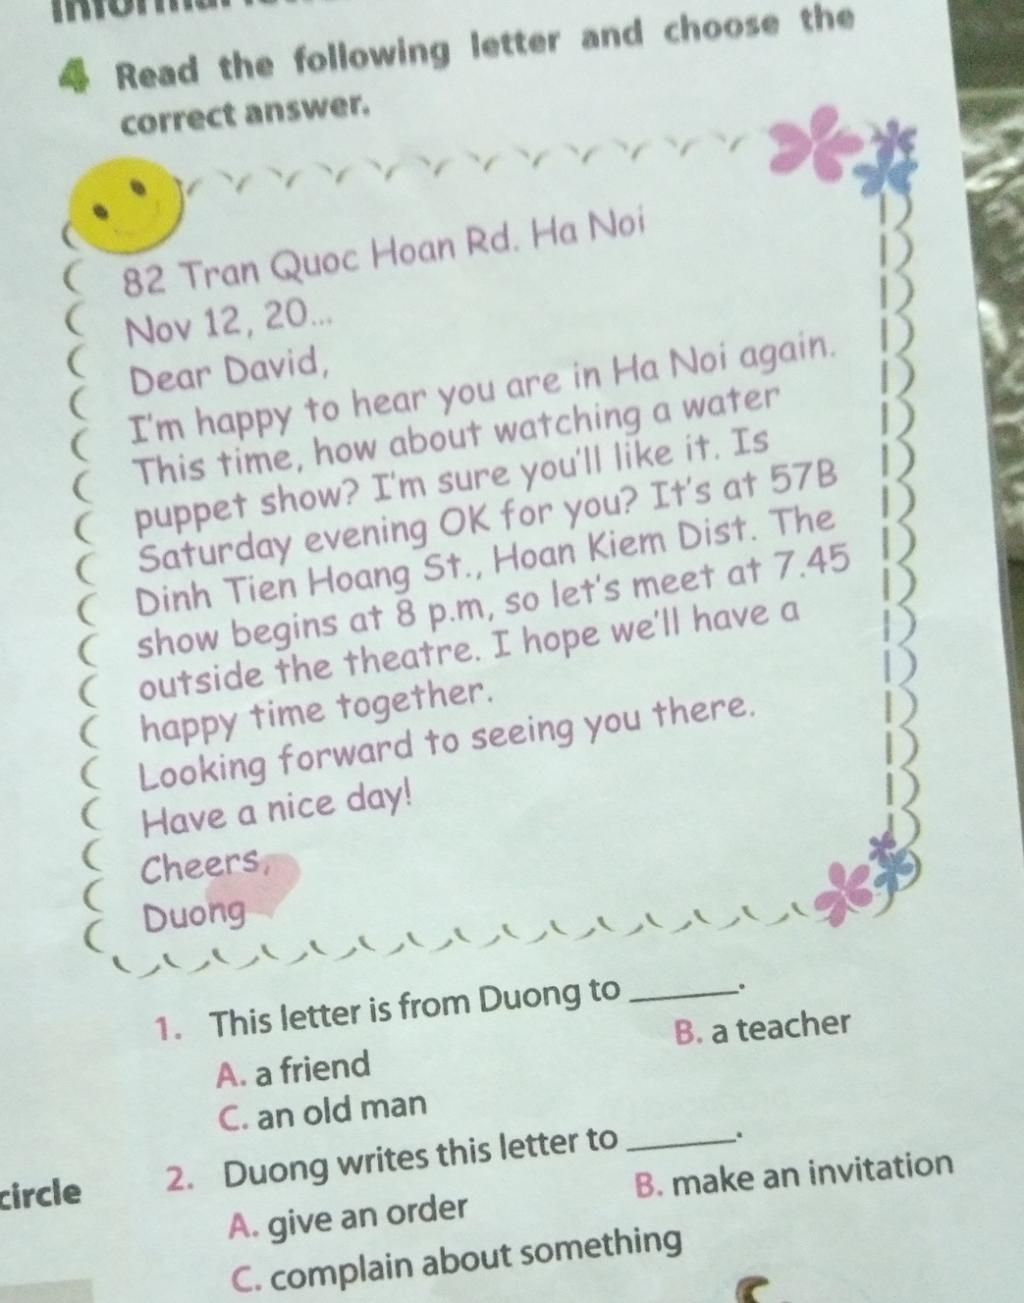 4 Read the following letter and choose the
correct answer.
82 Tran Quoc Hoan Rd. Ha Noi
Nov 12, 20...
Dear David,
I'm happy to hear you are in Ha Noi again.
This time, how about watching a water
puppet show? I'm sure you'll like it. Is
Saturday evening OK for you? It's at 57B
Dinh Tien Hoang St., Hoan Kiem Dist. The
show begins at 8 p.m, so let's meet at 7.45
outside the theatre. I hope we'll have a
happy time together.
Looking forward to seeing you there.
Have a nice day!
Cheers,
Duong
1. This letter is from Duong to ______.
A. a friend B. a teacher
C. an old man
2. Duong writes this letter to ______.
circle
A. give an order B. make an invitation
C. complain about something